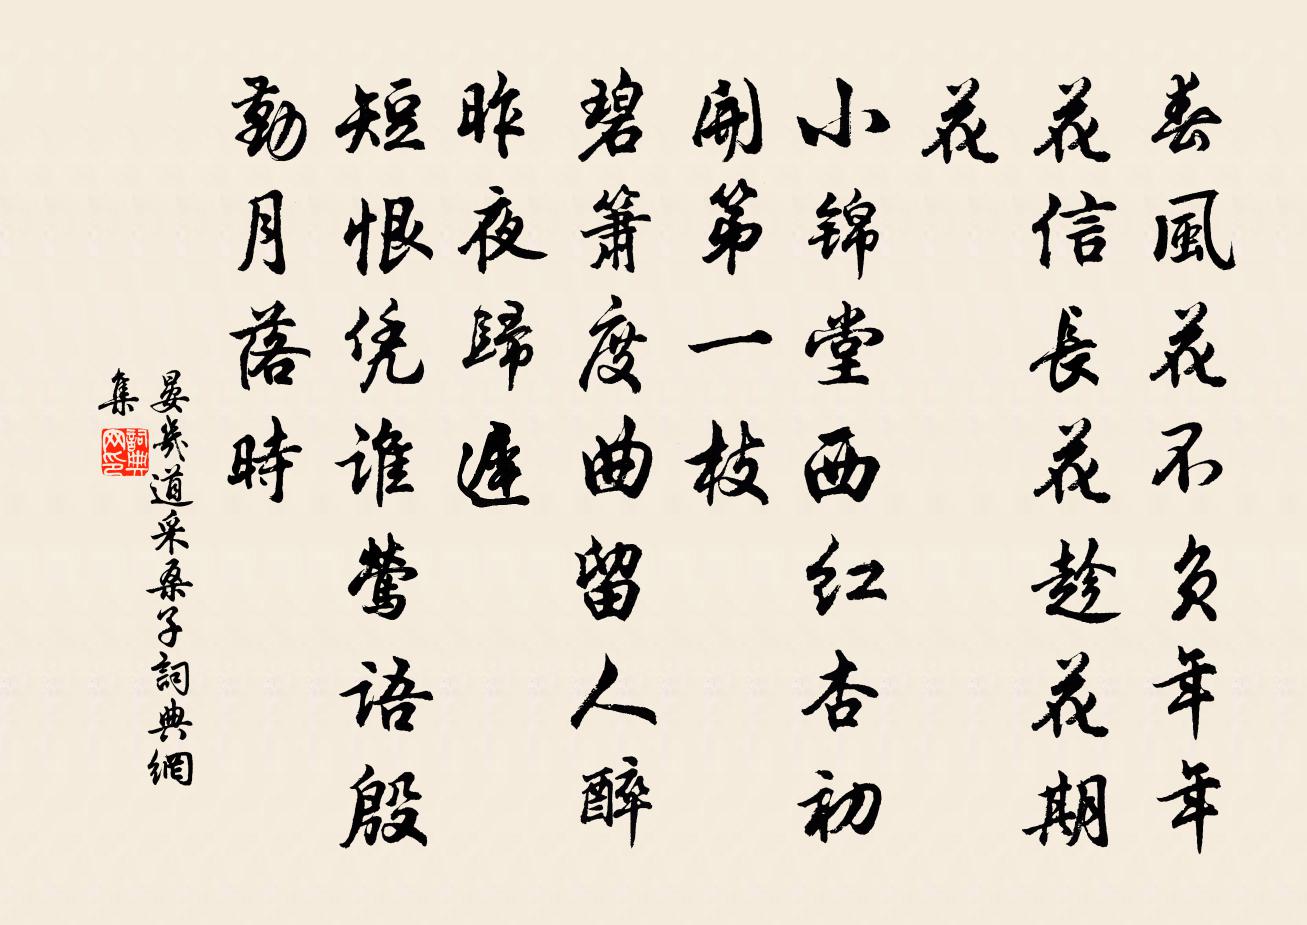 春風花不负年年
花信長花趁花期
花
小锦堂西红杏初
開第一枝
碧箫度曲留人醉
昨夜歸遲
短恨凭谁莺语殷
勤月落時
晏幾道采桑子詞典網
集
詞典
网印